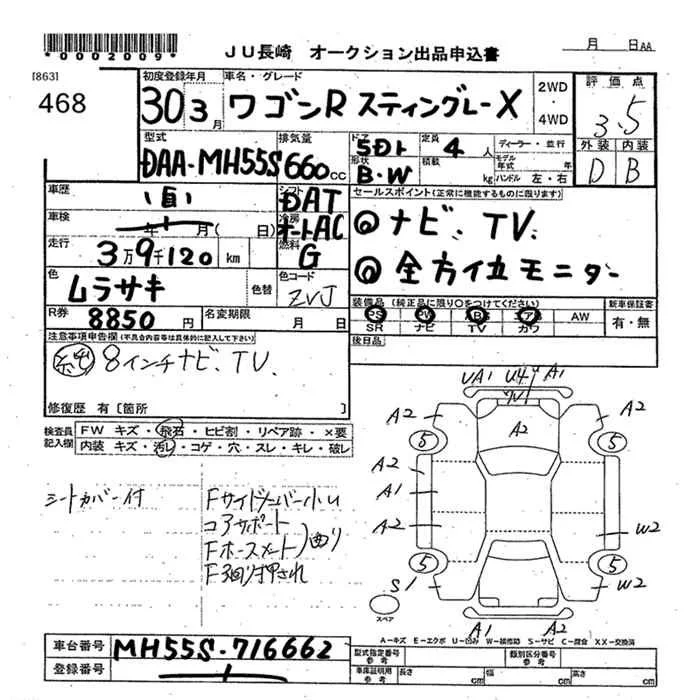 *0002009*
JU長崎 オークション出品申込書
月 日AA
[863]
468
初度登録年月 車名・グレード
30 3月 ワゴンR スティングレーX
2WD ・ 4WD
評価点
3.5
外装 内装
D B
型式 排気量
DAA-MH55S 660cc
ドア 定員 ディーラー・並行
5Dト 4人
形状 積載 モデル年式 年
B・W kg ハンドル 左・右
車歴 シフト
自 DAT
セールスポイント(正常に機能するものに限ります)
◎ナビ、TV、
◎全方位モニター
車検 冷房
年 月( 日) オートAC
走行 燃料
3万9千120km G
色 色替 色コード
ムラサキ ZVJ
R券 名変期限
8850円 月 日
装備品(純正品に限り○をつけてください) 新車保証書
PS PW AB エアB AW 有・無
SR ナビ TV カワ
後日品
注意事項申告欄(不具合内容等は具体的に記入して下さい)
8インチナビ、TV、
修復歴 有〔箇所 〕
検査員記入欄
FW キズ・飛石・ヒビ割・リペア跡・×要
内装 キズ・汚レ・コゲ・穴・スレ・キレ・破レ
シートカバー付
Fサイドメンバー小凹
コアサポート
Fホースメント)曲り
F廻り押され
UA1 U4 A1
A2 A2 A2
5 5
A2
A1
A2 W2
5 5
S1 W2
スペア
A1 A2
A-キズ E-エクボ U-凹み W-補修跡 S-サビ C-腐食 XX-交換済
車台番号 MH55S-716662
登録番号
型式指定番号 参考 類別区分番号 参考
車庫証明用 参考 長さ cm 幅 cm 高さ cm